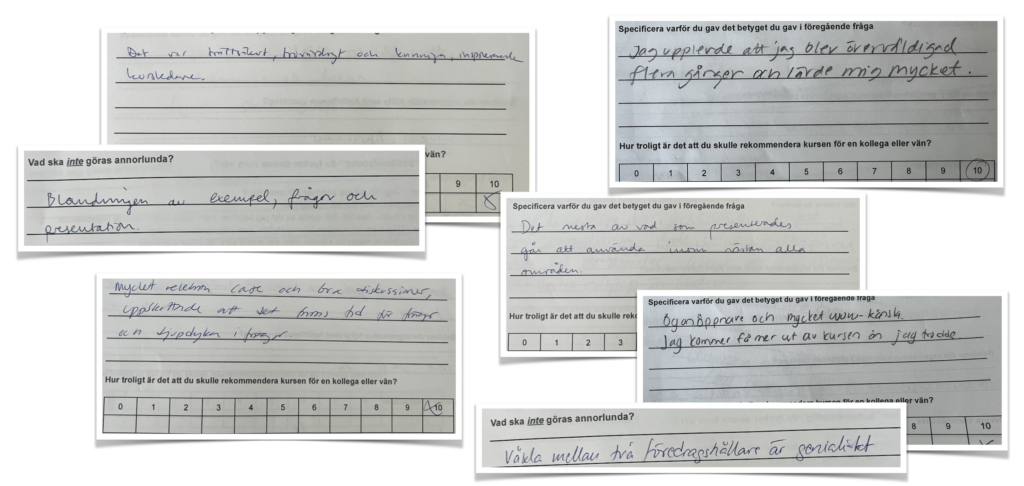 Det var trovärdigt och kunniga, inspirerande
kursledare.
vän?
9 10
Vad ska inte göras annorlunda?
Blandningen av exempel, frågor och
presentation.
Specificera varför du gav det betyget du gav i föregående fråga
Jag upplevde att jag blev överväldigad
flera gånger och lärde mig mycket.
Hur troligt är det att du skulle rekommendera kursen för en kollega eller vän?
0 1 2 3 4 5 6 7 8 9 10
Specificera varför du gav det betyget du gav i föregående fråga
Det mesta av vad som presenterades
går att använda inom nästan alla
områden.
Hur troligt är det att du skulle rek
0 1 2 3
Mycket relevanta case och bra diskussioner,
uppskattande att det finns tid för frågor
och djupdyken i frågor.
Hur troligt är det att du skulle rekommendera kursen för en kollega eller vän?
0 1 2 3 4 5 6 7 8 9 10
Specificera varför du gav det betyget du gav i föregående fråga
Ögonöppnare och mycket wow-känsla.
Jag kommer få mer ut av kursen än jag trodde
kursen för en kollega eller vän?
8 9 10
Vad ska inte göras annorlunda?
Växla mellan två föredragshållare är genialiskt